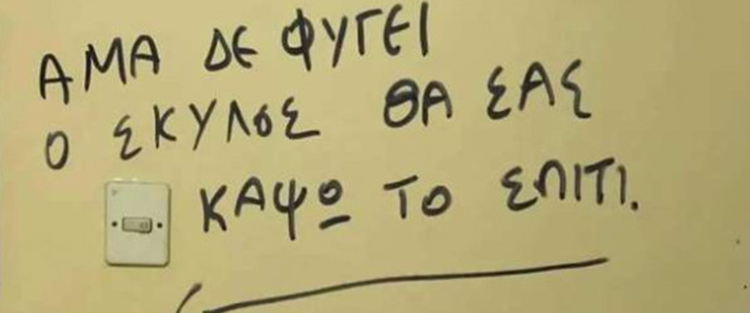 ΑΜΑ ΔΕ ΦΥΓΕΙ
Ο ΣΚΥΛΟΣ ΘΑ ΣΑΣ
ΚΑΨΩ ΤΟ ΣΠΙΤΙ.